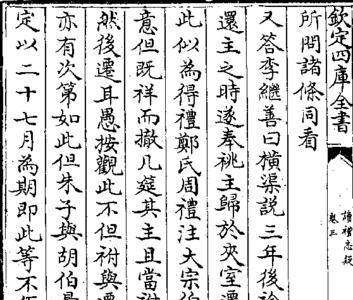 欽定四庫全書
讀禮志疑
卷三
所問諸條同看
又答李繼善曰橫渠說三年後
還主之時遂奉祧主歸於夾室遷
此似為得禮鄭氏周禮注大宗伯
意但既祥而撤几筵其主且當祔
然後遷耳愚按觀此不但祔與遷
亦有次第如此但朱子與胡伯
定以二十七月為期即此等不